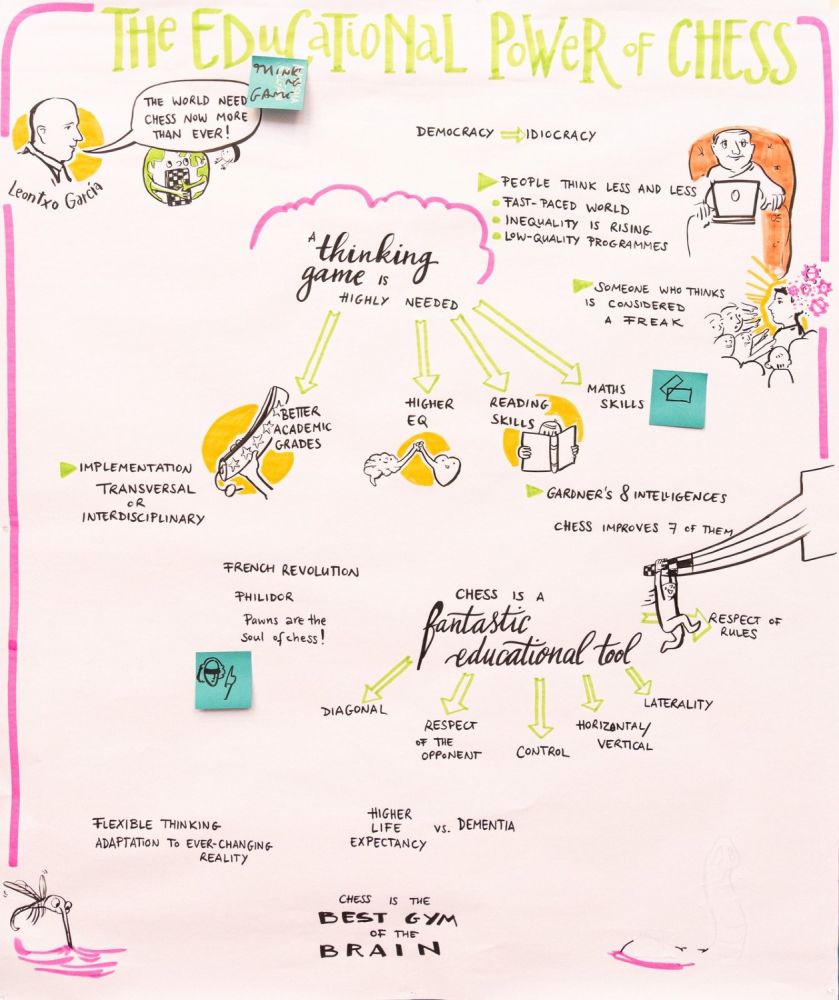 THE EDUCATIONAL POWER OF CHESS
THINK
NG
GAME
THE WORLD NEED
CHESS NOW MORE
THAN EVER!
Leontxo García
DEMOCRACY ⇒ IDIOCRACY
PEOPLE THINK LESS AND LESS
FAST-PACED WORLD
INEQUALITY IS RISING
LOW-QUALITY PROGRAMMES
SOMEONE WHO THINKS
IS CONSIDERED
A FREAK
A thinking
game IS
HIGHLY NEEDED
BETTER
ACADEMIC
GRADES
HIGHER
EQ
READING
SKILLS
MATHS
SKILLS
IMPLEMENTATION
TRANSVERSAL
OR
INTERDISCIPLINARY
GARDNER'S 8 INTELLIGENCES
CHESS IMPROVES 7 OF THEM
FRENCH REVOLUTION
PHILIDOR
Pawns are the
soul of chess!
CHESS IS A
fantastic
educational tool
RESPECT OF
RULES
DIAGONAL
RESPECT
OF THE
OPPONENT
CONTROL
HORIZONTAL/
VERTICAL
LATERALITY
FLEXIBLE THINKING
ADAPTATION TO EVER-CHANGING
REALITY
HIGHER
LIFE
EXPECTANCY
VS. DEMENTIA
CHESS IS THE
BEST GYM
OF THE
BRAIN